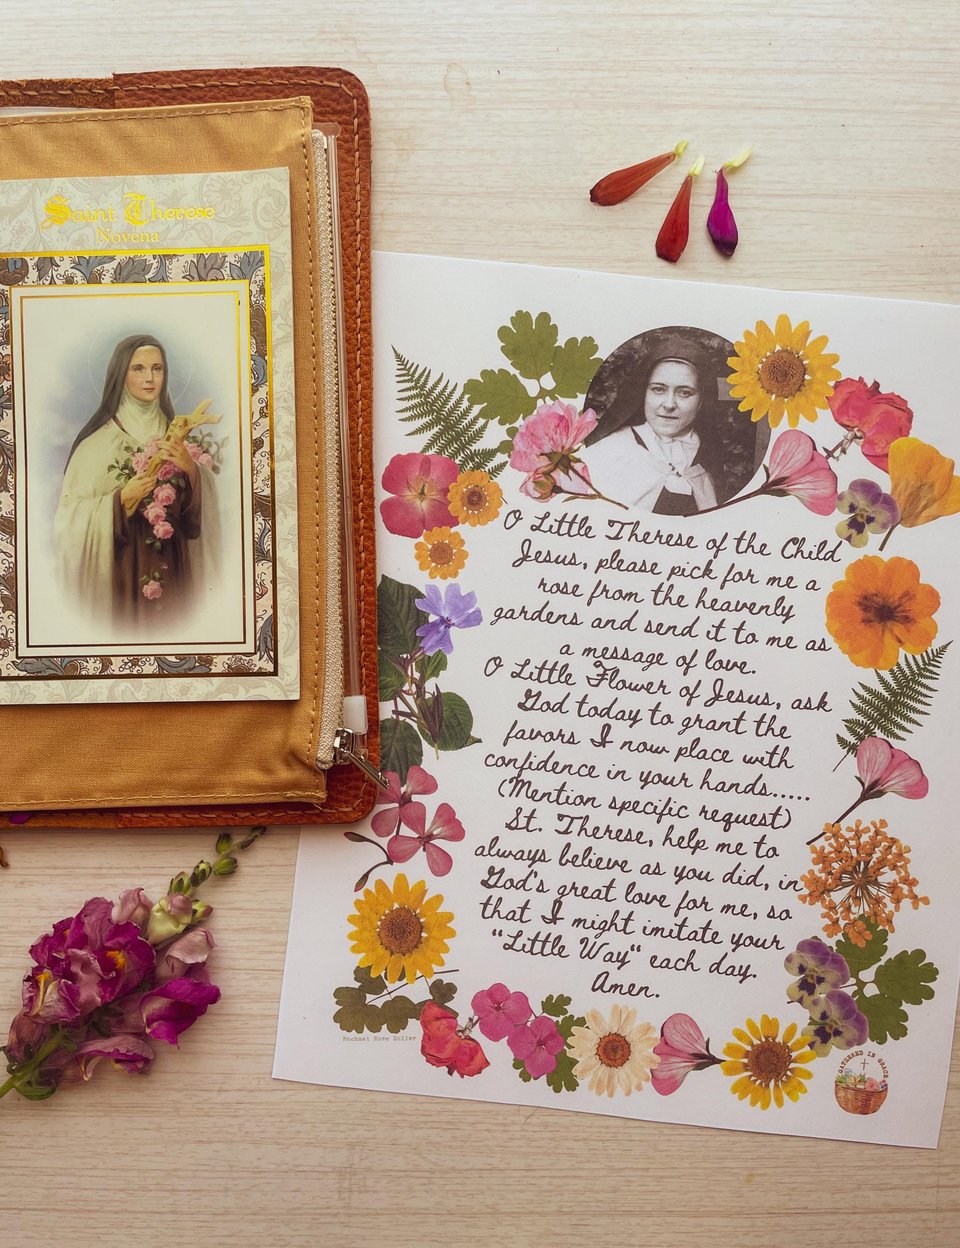 Saint Therese
Novena
O Little Therese of the Child
Jesus, please pick for me a
rose from the heavenly
gardens and send it to me as
a message of love.
O Little Flower of Jesus, ask
God today to grant the
favors I now place with
confidence in your hands.....
(Mention specific request)
St. Therese, help me to
always believe as you did, in
God's great love for me, so
that I might imitate your
"Little Way" each day.
Amen.
Rachael Rose Zoller
GATHERED IN GRACE